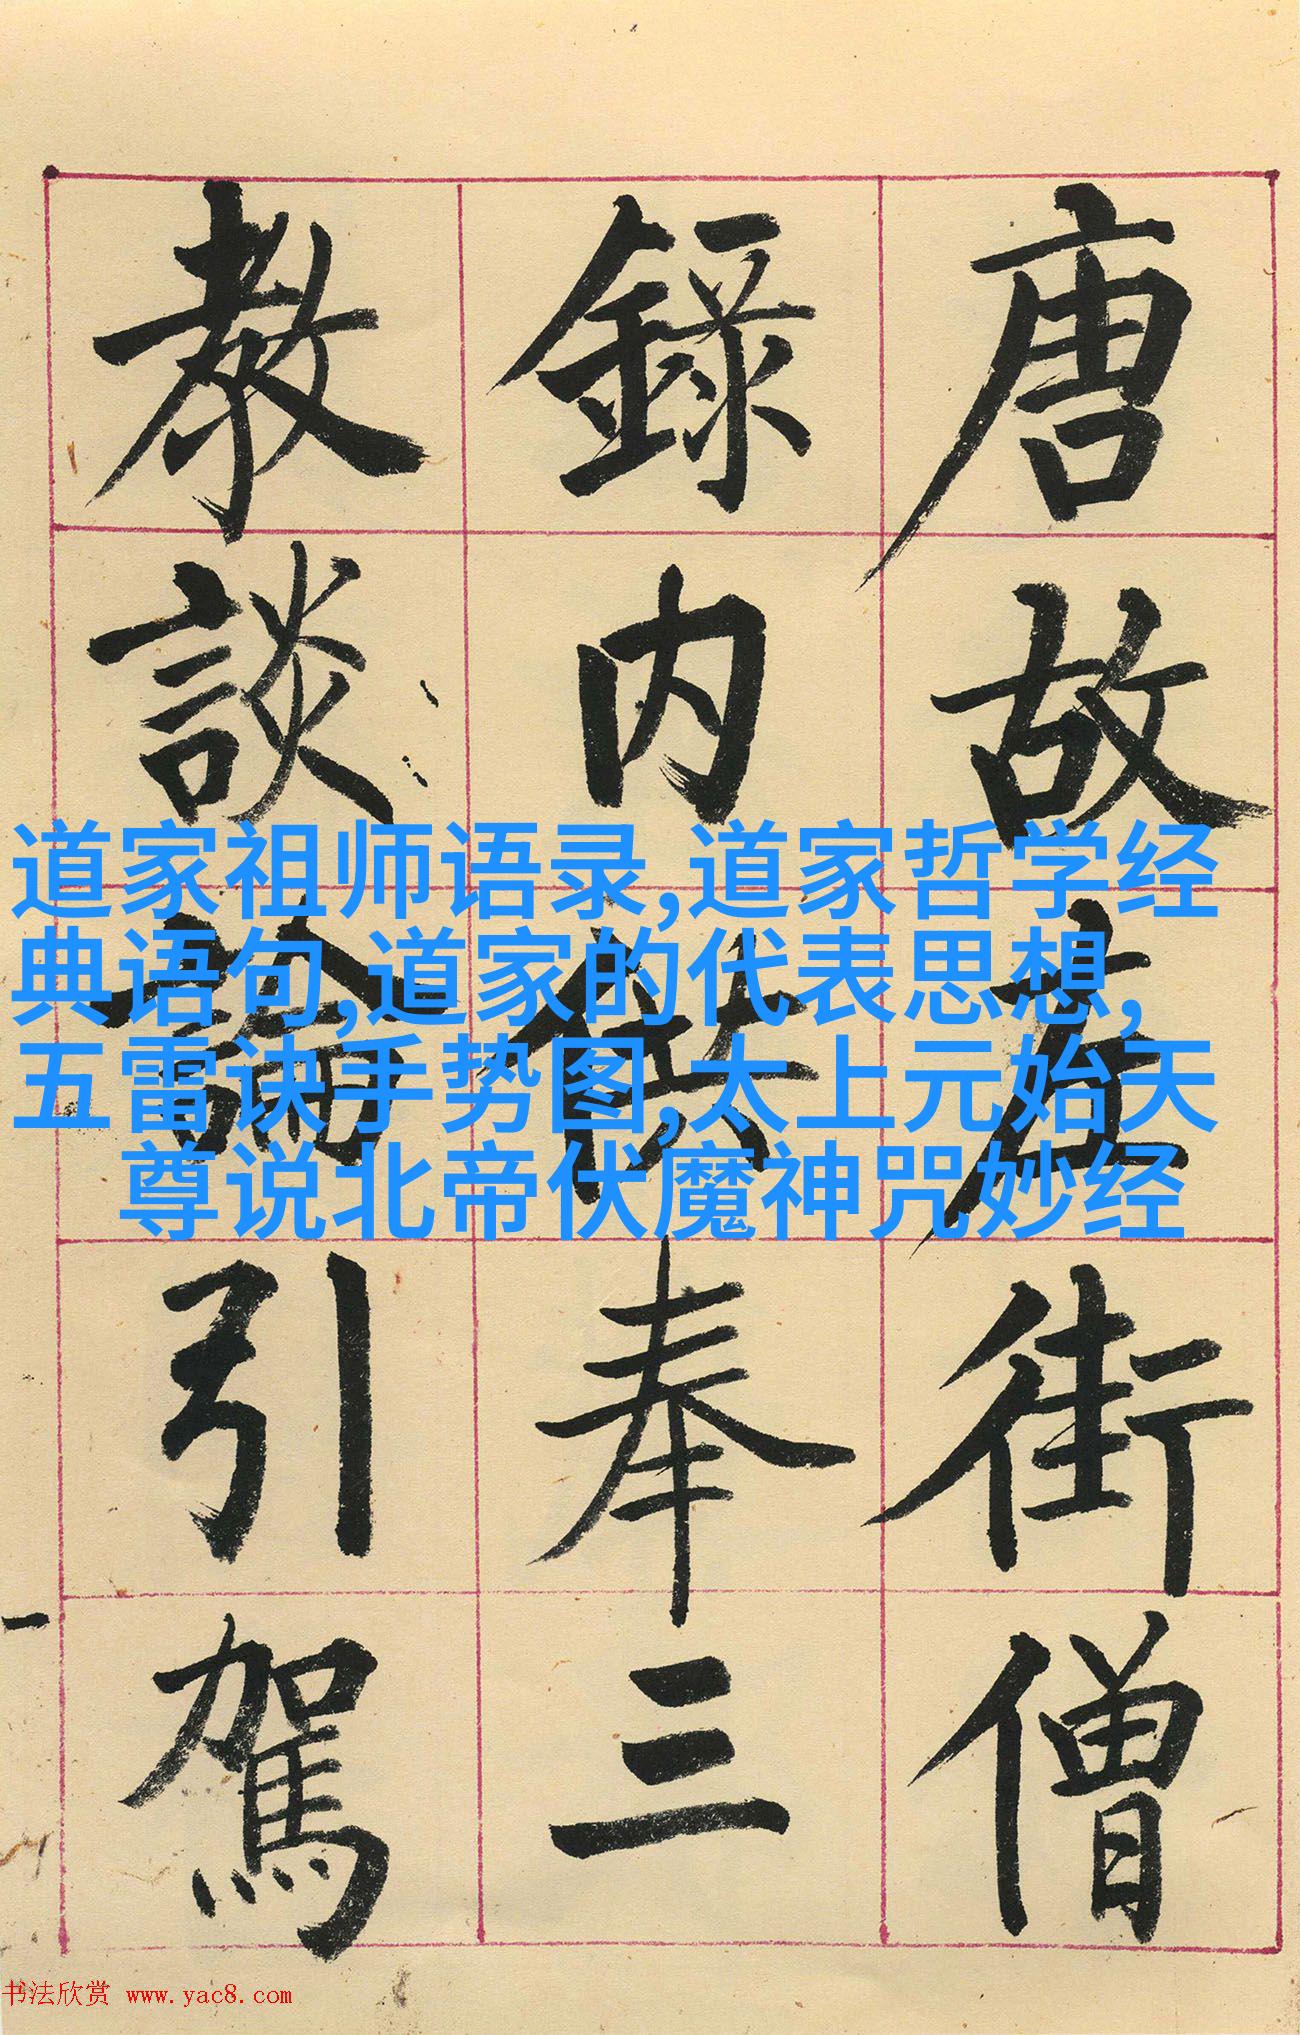 唐故左街僧
錄内供奉三
教談論引駕
道家祖师语录,道家哲学经
典语句,道家的代表思想,
五雷诀手势图,太上元始天
尊说北帝伏魔神咒妙经
书法欣赏 www.yac8.com